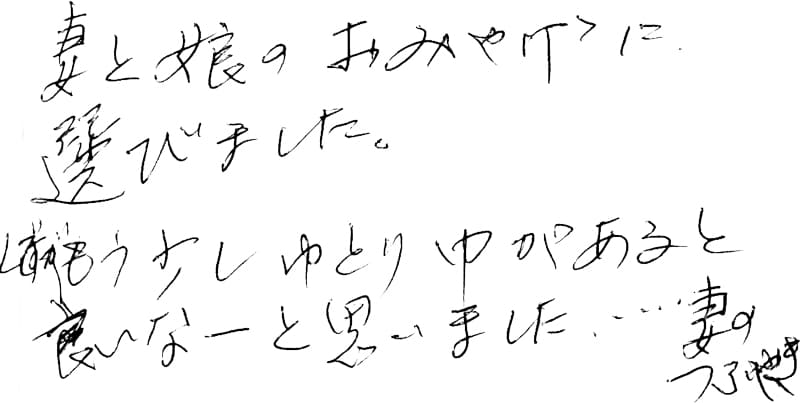 妻と娘のおみやげに
選びました。
もう少しゆとり巾があると
良いなーと思いました……妻の
つぶやき